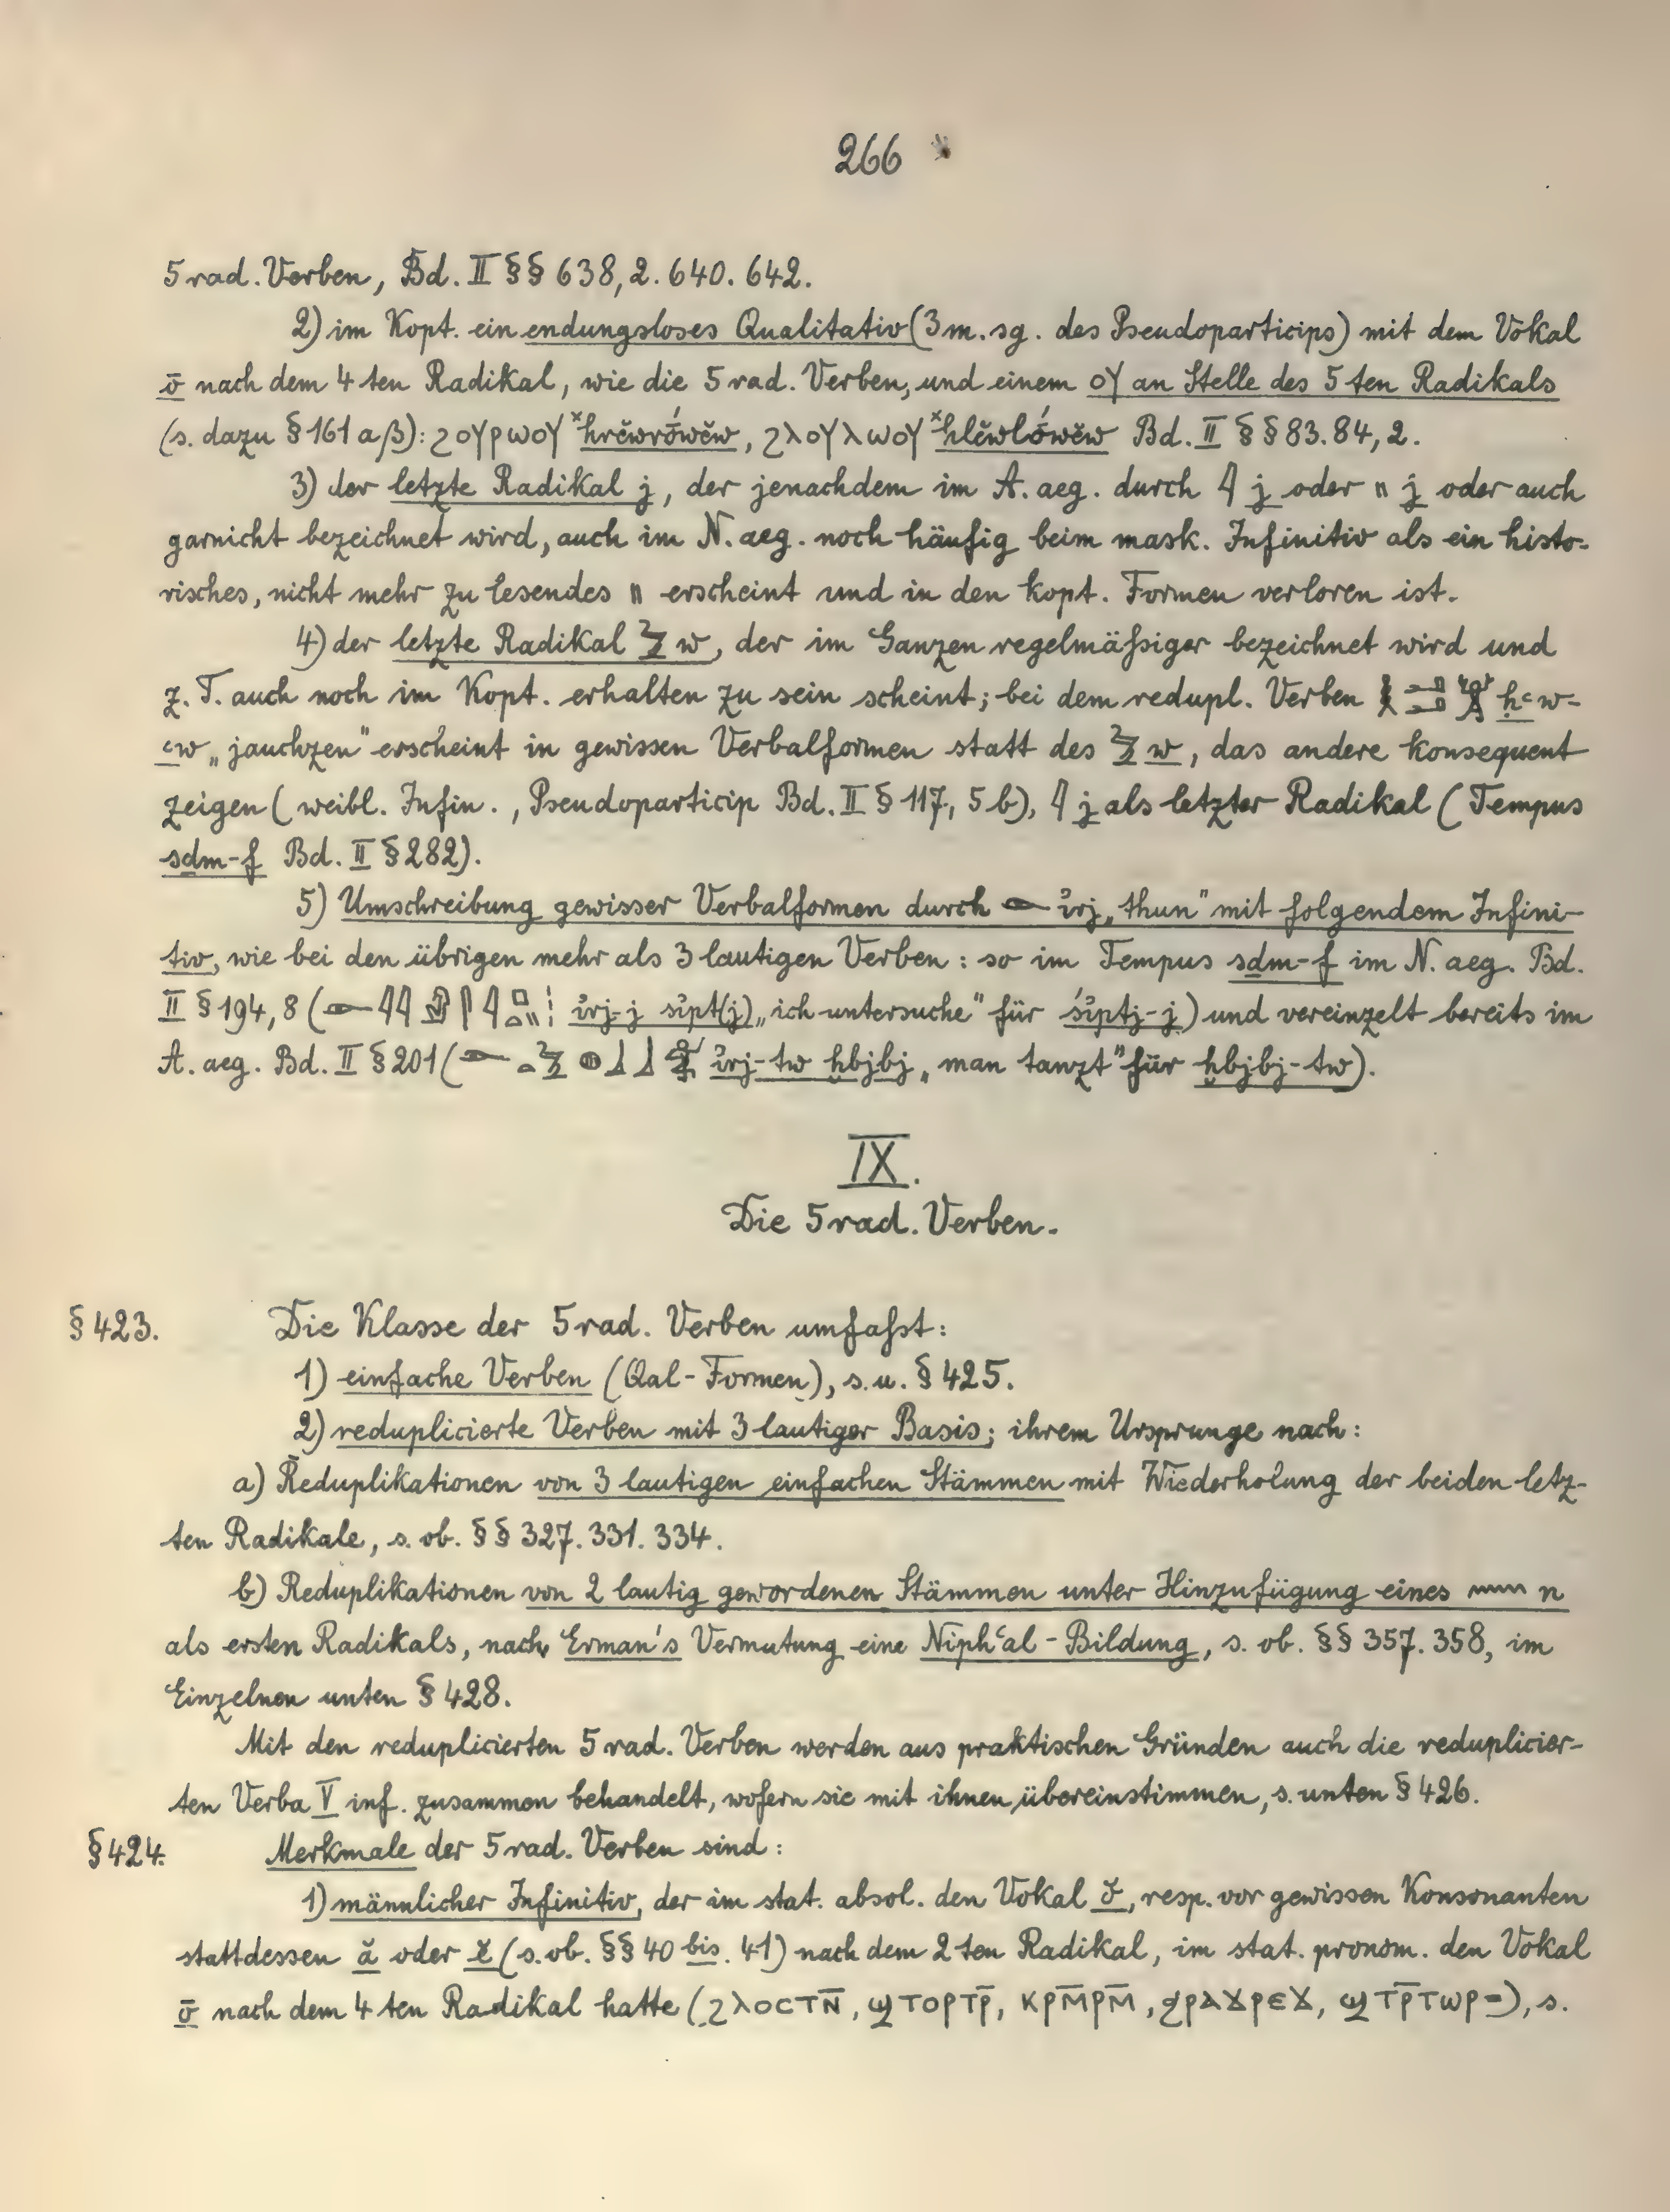 266
5 rad. Verben, Bd. II §§ 638,2. 640. 642.
2) im Kopt. ein endungsloses Qualitativ (3 m. sg. des Pseudoparticips) mit dem Vokal
ō nach dem 4 ten Radikal, wie die 5 rad. Verben, und einem ⲟⲩ an Stelle des 5 ten Radikals
(s. dazu § 161 a β): ϩⲟⲩⲣⲱⲟⲩ ˣhrĕwrṓwĕw, ϩⲗⲟⲩⲗⲱⲟⲩ ˣhlĕwlṓwĕw Bd. II §§ 83. 84, 2.
3) der letzte Radikal j, der jenachdem im A. aeg. durch 𓇋 j oder 𓏭 j oder auch
garnicht bezeichnet wird, auch im N. aeg. noch häufig beim mask. Infinitiv als ein histo-
risches, nicht mehr zu lesendes 𓏭 erscheint und in den kopt. Formen verloren ist.
4) der letzte Radikal 𓏲 w, der im Ganzen regelmäßiger bezeichnet wird und
z. T. auch noch im Kopt. erhalten zu sein scheint; bei dem redupl. Verben ḥꜥw-
ꜥw „jauchzen" erscheint in gewissen Verbalformen statt des 𓏲 w, das andere konsequent
zeigen (weibl. Infin., Pseudoparticip Bd. II § 117, 5 b), 𓇋 j als letzter Radikal (Tempus
sḏm-f Bd. II § 282).
5) Umschreibung gewisser Verbalformen durch 𓁹 ı͗rj „thun" mit folgendem Infini-
tiv, wie bei den übrigen mehr als 3 lautigen Verben: so im Tempus sḏm-f im N. aeg. Bd.
II § 194, 8 ( ı͗rj-j sı͗pt(j) „ich untersuche" für śı͗ptj-j) und vereinzelt bereits im
A. aeg. Bd. II § 201 ( ı͗rj-tw ḫbjbj „man tanzt" für ḫbjbj-tw).
IX.
Die 5 rad. Verben.
§ 423. Die Klasse der 5 rad. Verben umfaßt:
1) einfache Verben (Qal-Formen), s. u. § 425.
2) reduplicierte Verben mit 3 lautiger Basis; ihrem Ursprunge nach:
a) Reduplikationen von 3 lautigen einfachen Stämmen mit Wiederholung der beiden letz-
ten Radikale, s. ob. §§ 327. 331. 334.
b) Reduplikationen von 2 lautig gewordenen Stämmen unter Hinzufügung eines 𓈖 n
als ersten Radikals, nach Erman's Vermutung eine Niphꜥal-Bildung, s. ob. §§ 357. 358, im
Einzelnen unten § 428.
Mit den reduplicierten 5 rad. Verben werden aus praktischen Gründen auch die reduplicier-
ten Verba V inf. zusammen behandelt, wofern sie mit ihnen übereinstimmen, s. unten § 426.
§ 424. Merkmale der 5 rad. Verben sind:
1) männlicher Infinitiv, der im stat. absol. den Vokal ŏ, resp. vor gewissen Konsonanten
stattdessen ă oder ĕ (s. ob. §§ 40 bis. 41) nach dem 2 ten Radikal, im stat. pronom. den Vokal
ō nach dem 4 ten Radikal hatte (ϩⲗⲟⲥⲧⲛ̄, ϣⲧⲟⲣⲧⲣ̄, ⲕⲣⲙ̄ⲣⲙ̄, ϩⲣⲁϫⲣⲉϫ, ϣⲧⲣ̄ⲧⲱⲣ=), s.